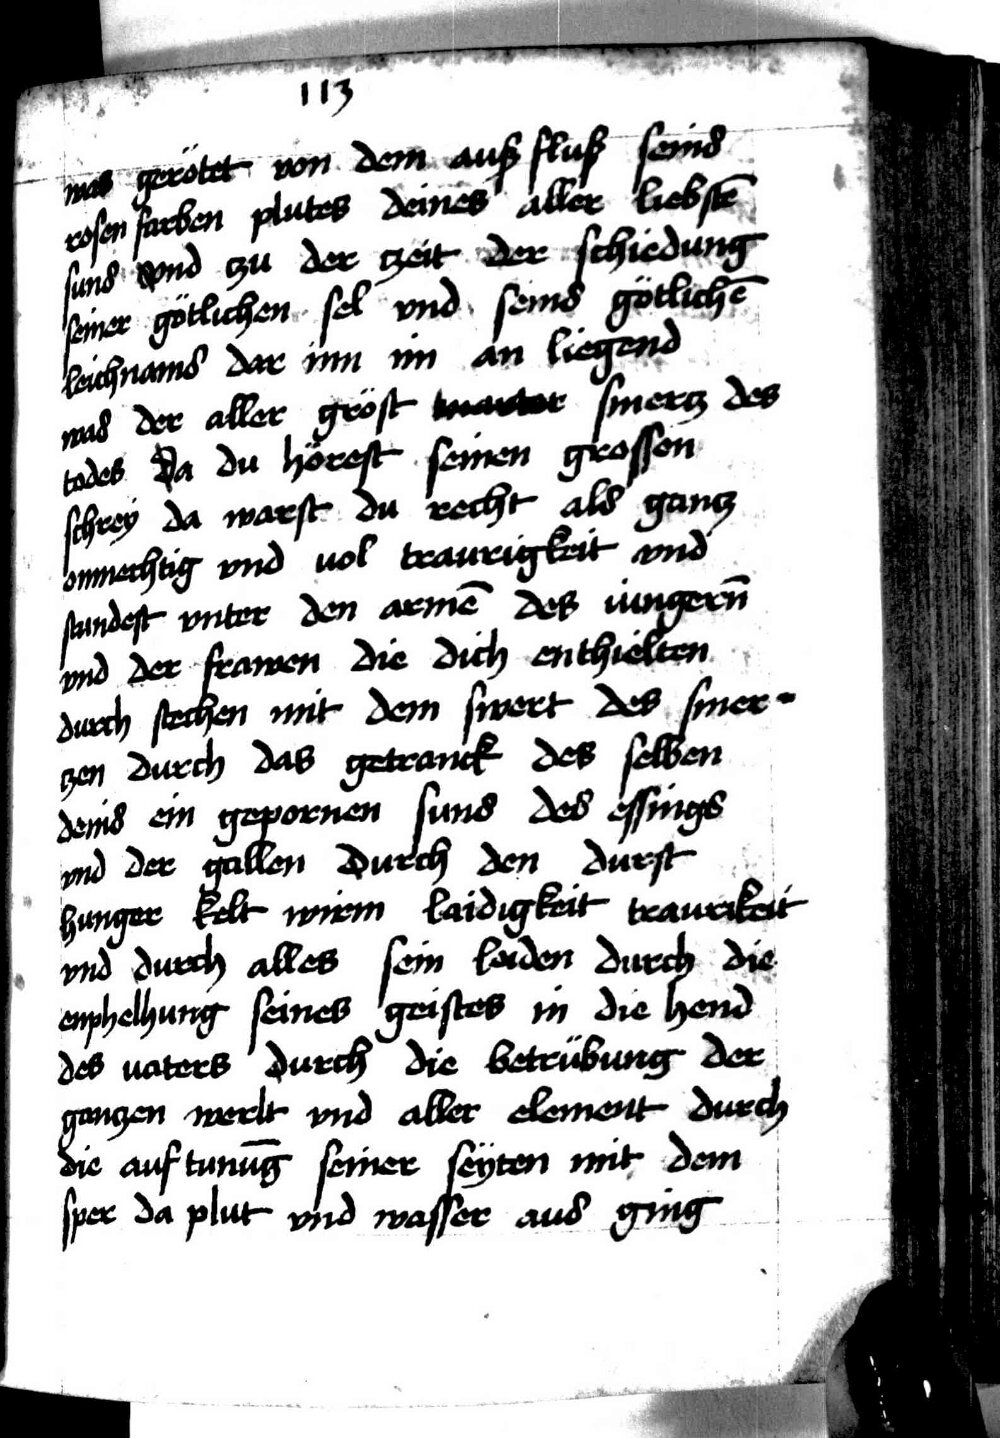 113
was gerötet von dem ausz flusz seins
rosen farben plutes deines aller liebstē
suns Vnd tzu der tzeit der schiedung
seiner götlichen sel vnd seins götlichē
leichnams dar inn im an liegend
was der aller gröst smertz des
todes Da du hörest seinen grossen
schrey da warst du recht als gantz
onmechtig vnd uol traurigkeit vnd
stundest vnter den armē des iungern̄
vnd der frawen die dich enthielten
durch stechen mit dem swert des smer-
tzen durch das getranck des selben
deins ein gepornen suns des essings
vnd der gallen Durch den durst
hunger kelt wirm laidigkeit traurikeit
vnd durch alles sein leiden durch die
enphelhung seines geistes in die hend
des uaters Durch die betrübung der
gantzen werlt vnd aller element durch
die auf tunūg seiner seyten mit dem
sper da plut vnd wasser aus ging